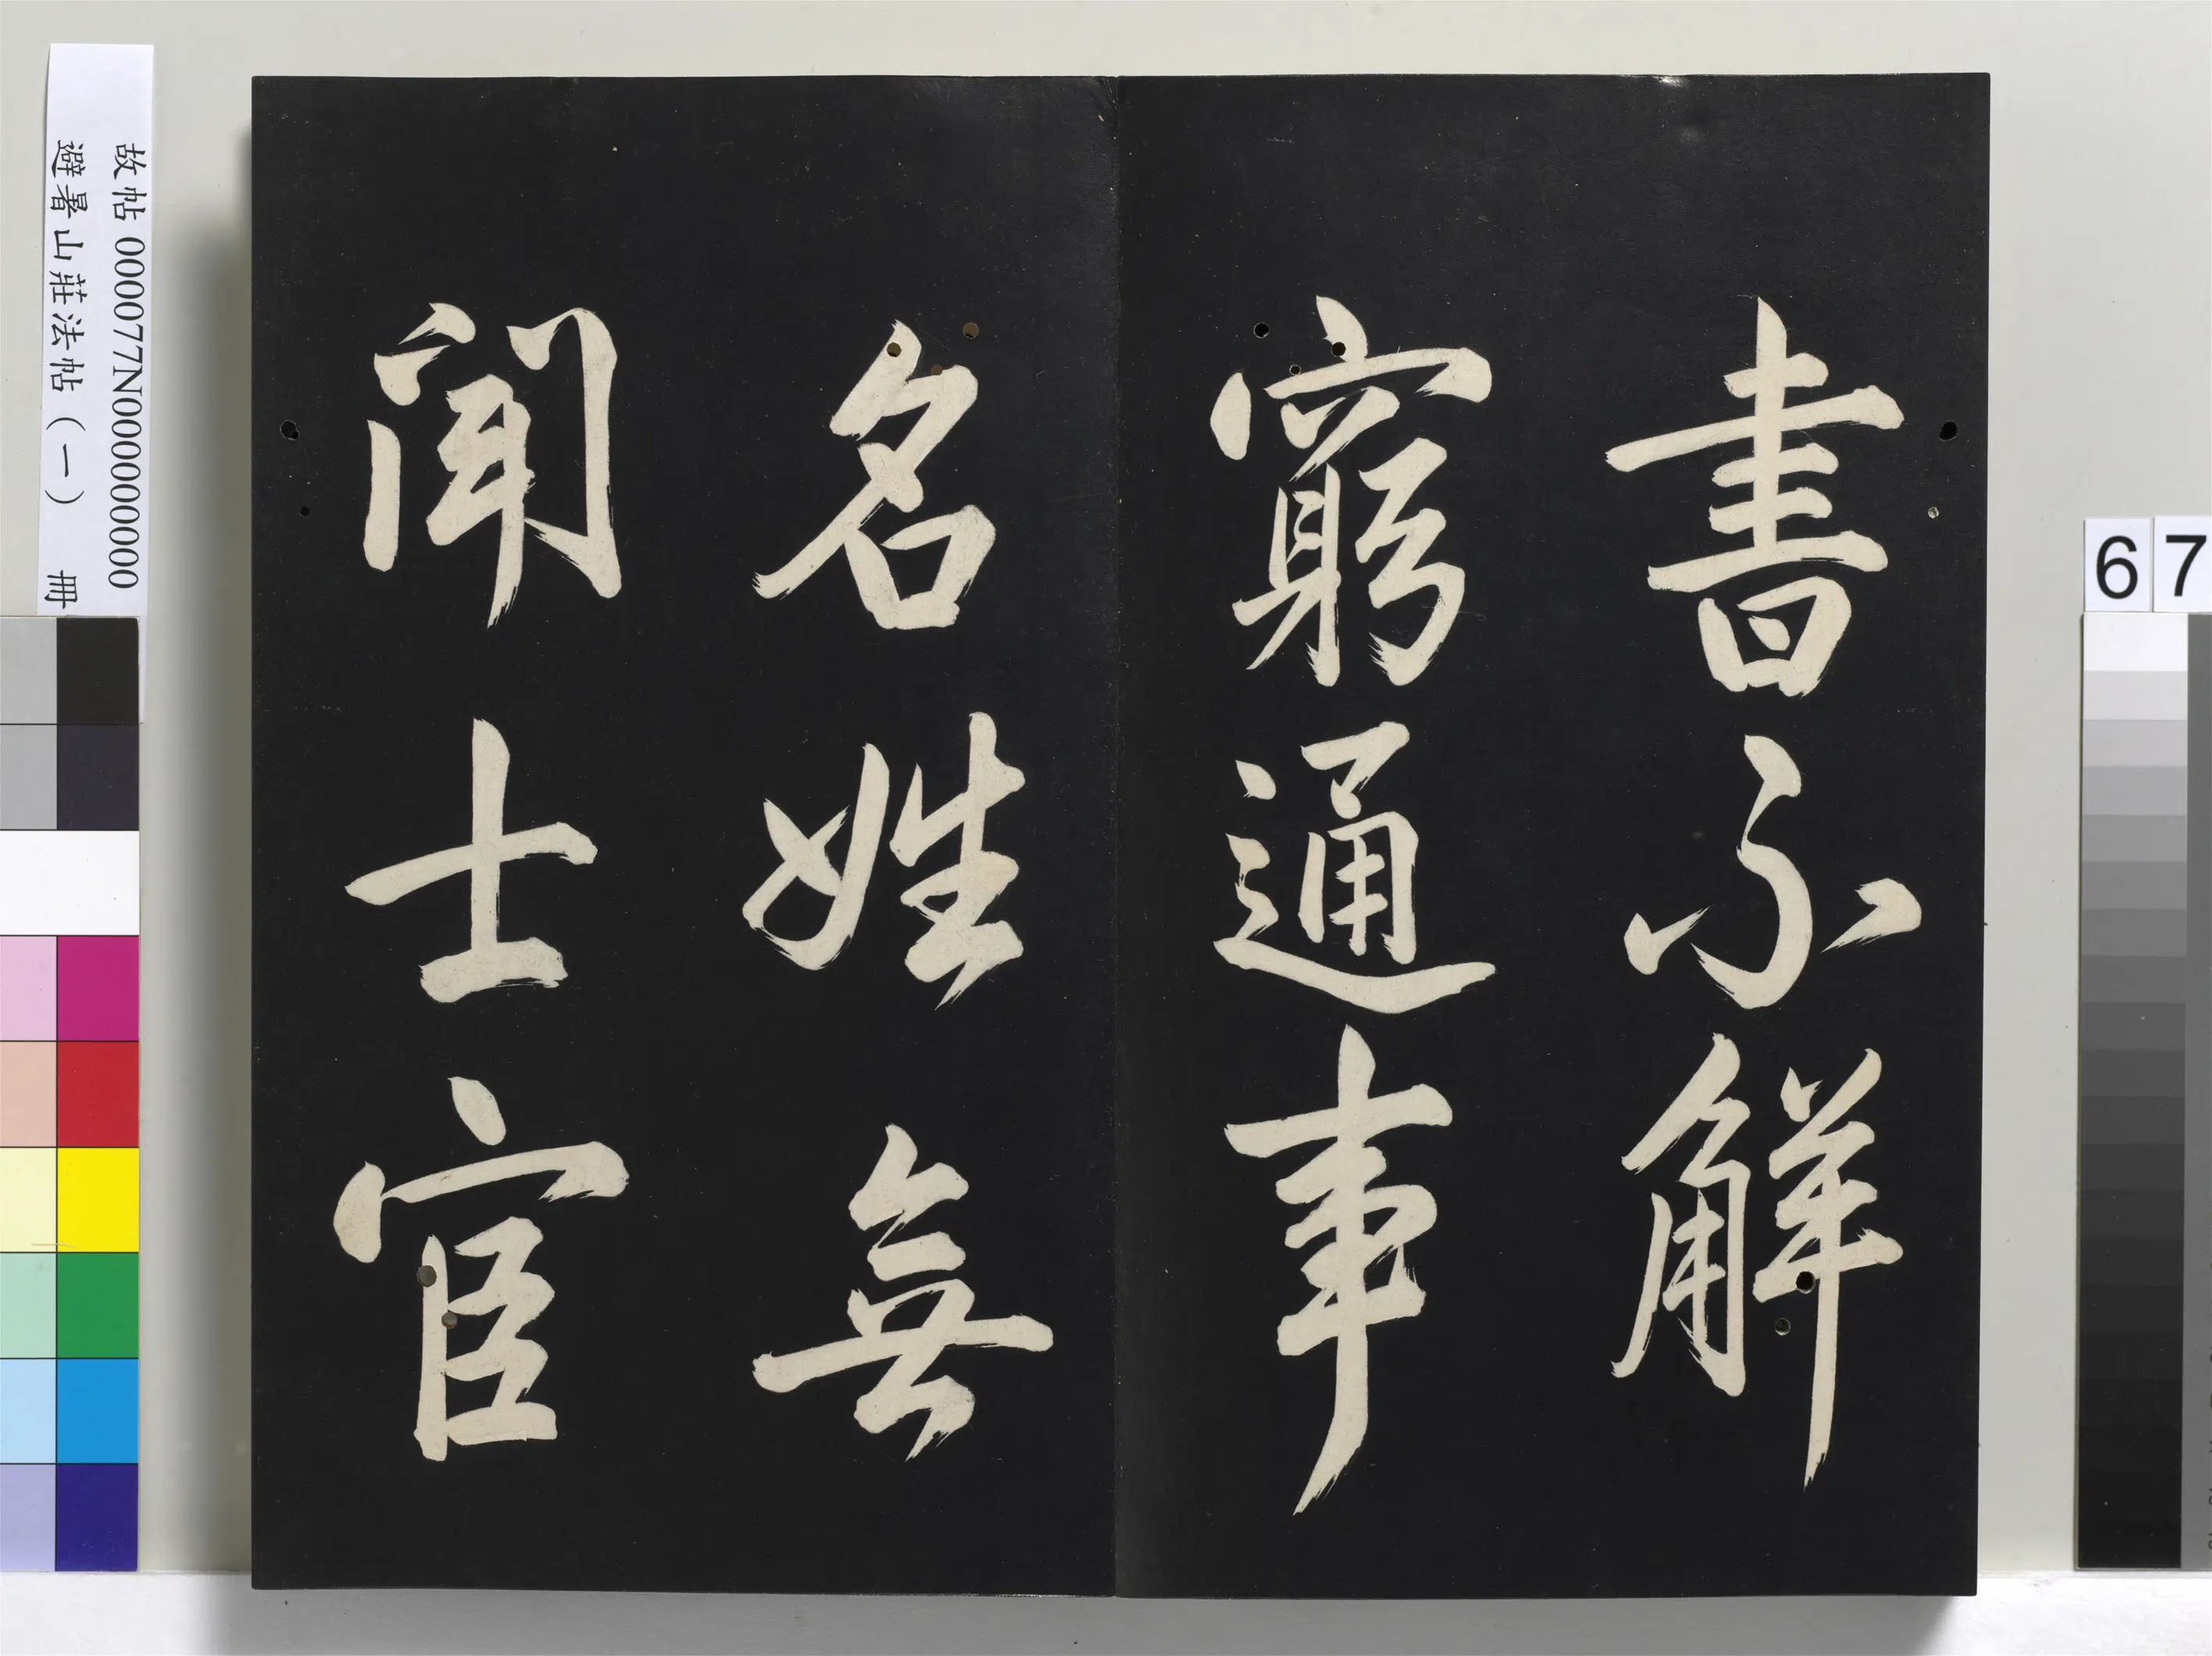 書不解
窮通事
名姓無
聞士宦
故帖 000077N000000000
避暑山莊法帖（一） 冊
67